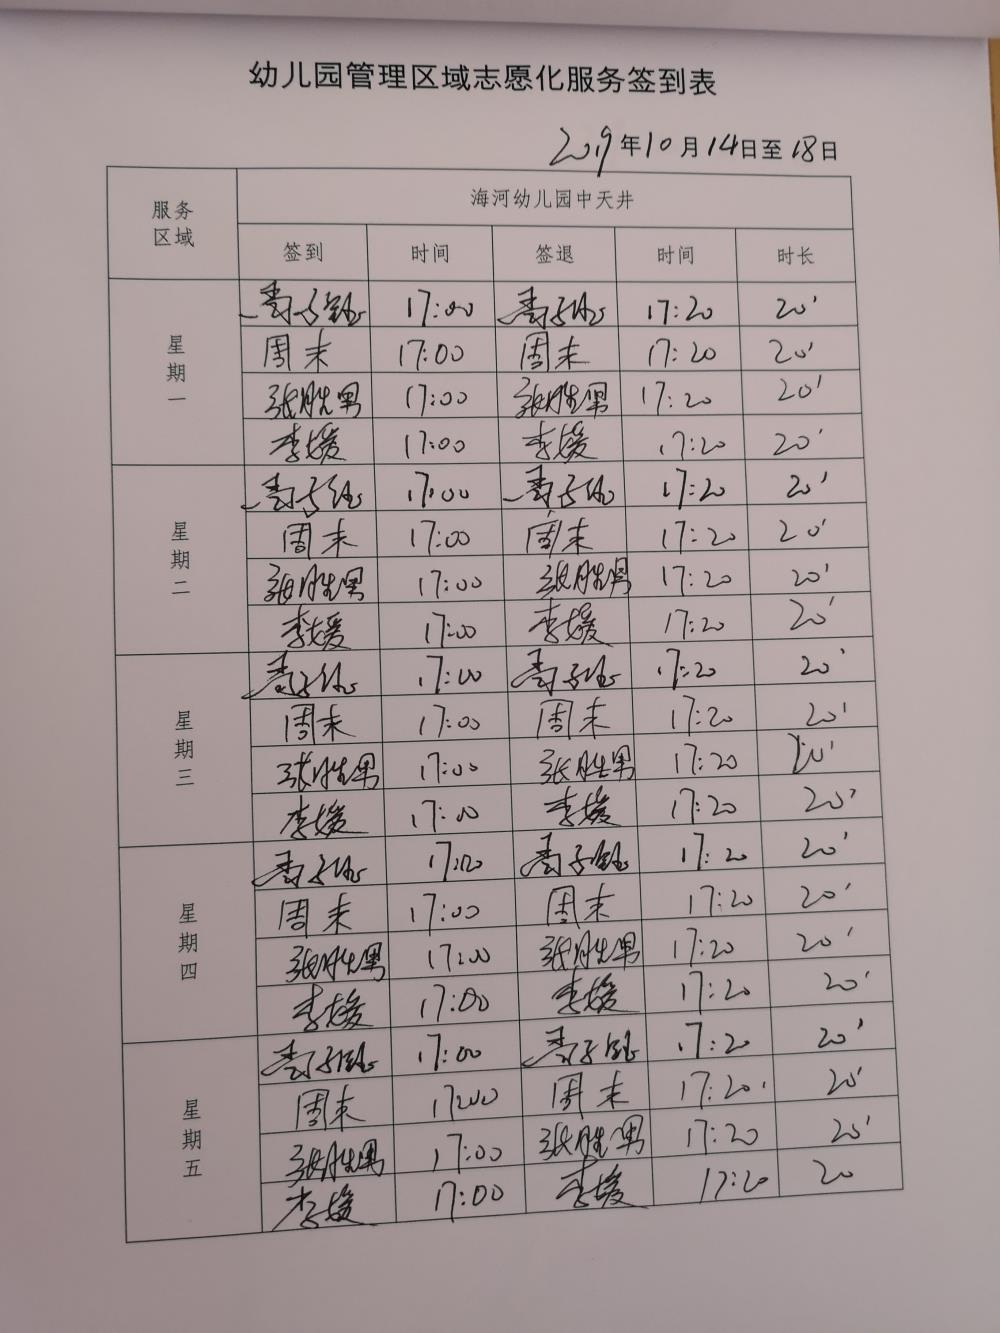 幼儿园管理区域志愿化服务签到表
2019年10月14日至18日
服务区域 海河幼儿园中天井
签到 时间 签退 时间 时长
星期一
17:00 17:20 20'
周末 17:00 周末 17:20 20'
张胜男 17:00 张胜男 17:20 20'
李媛 17:00 李媛 17:20 20'
星期二
17:00 17:20 20'
周末 17:00 周末 17:20 20'
张胜男 17:00 张胜男 17:20 20'
李媛 17:00 李媛 17:20 20'
星期三
17:00 17:20 20'
周末 17:00 周末 17:20 20'
张胜男 17:00 张胜男 17:20 20'
李媛 17:00 李媛 17:20 20'
星期四
17:00 17:20 20'
周末 17:00 周末 17:20 20'
张胜男 17:00 张胜男 17:20 20'
李媛 17:00 李媛 17:20 20'
星期五
17:00 17:20 20'
周末 17:00 周末 17:20 20'
张胜男 17:00 张胜男 17:20 20'
李媛 17:00 李媛 17:20 20